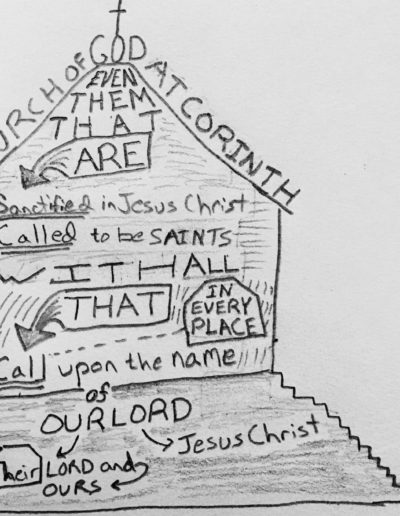 URCH OF GOD AT CORINTH
EVEN
THEM
THAT
ARE
Sanctified in Jesus Christ
Called to be SAINTS
WITH ALL
THAT
IN
EVERY
PLACE
Call upon the name
of
OUR LORD
Jesus Christ
Their LORD and
OURS